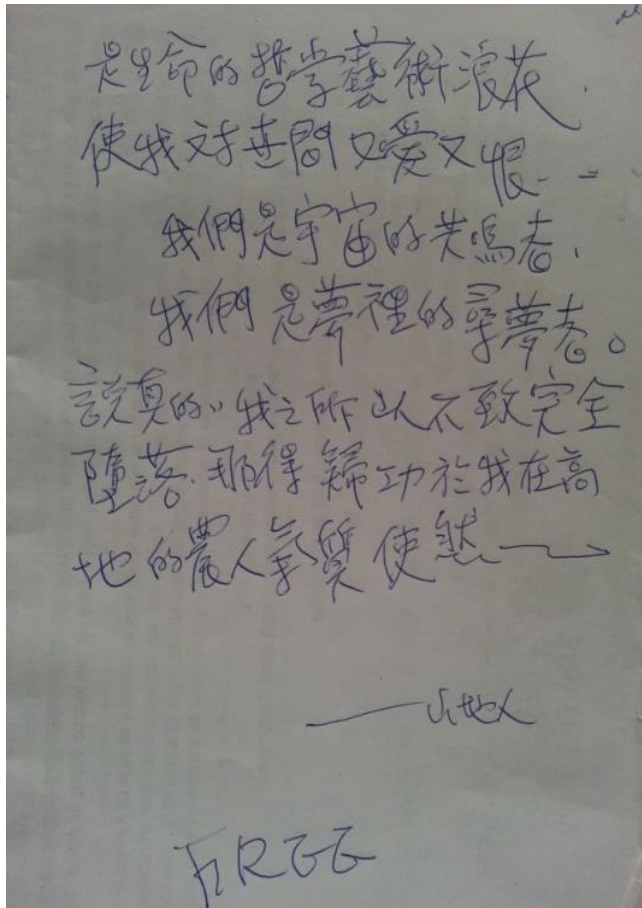 是生命的哲学藝術浪花.
使我对世間又愛又恨.
我們是宇宙的共鳴者.
我們是夢裡的尋夢者。
說真的,,我之所以不致完全
墮落.那得歸功於我在高
地的農人氣質使然——
——山地人
FREE